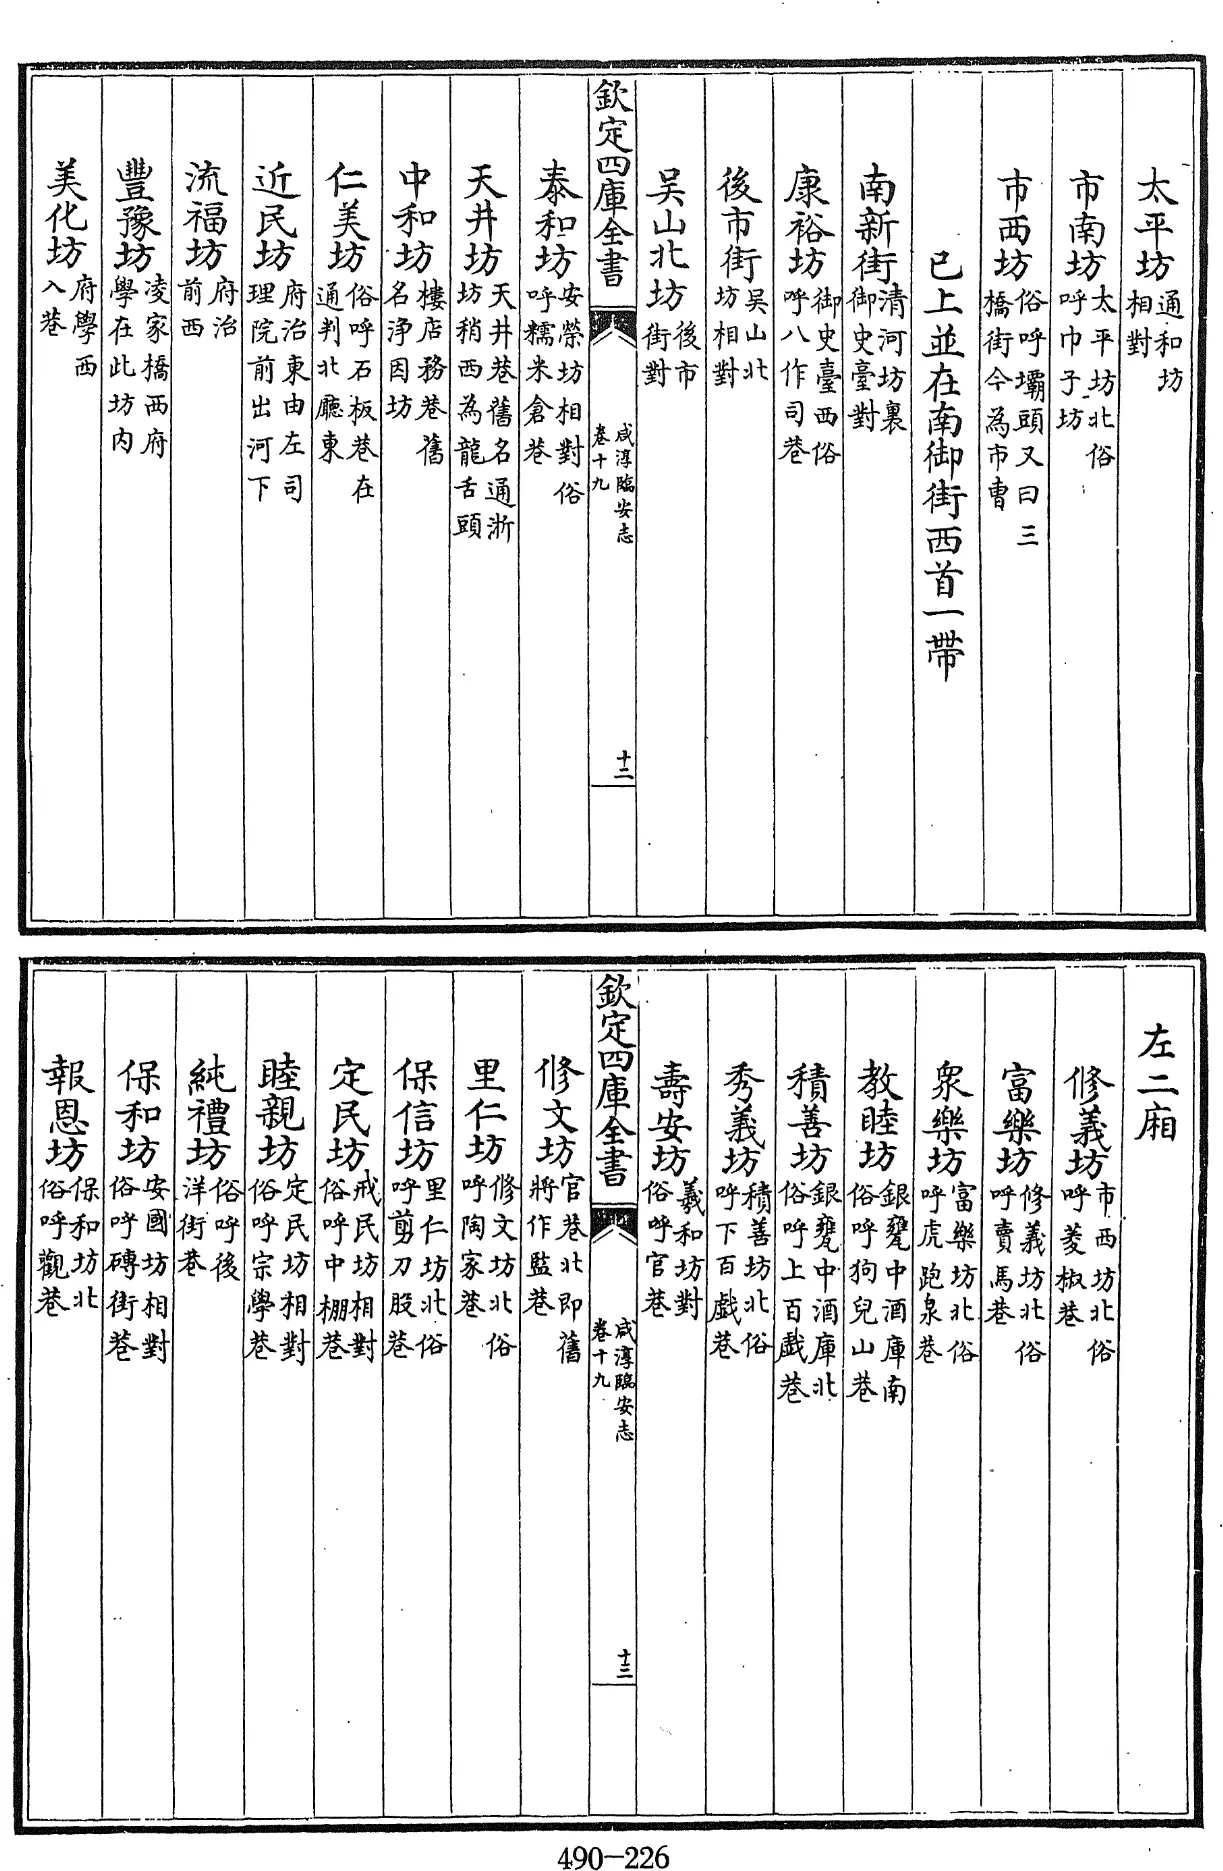 太平坊通和坊相對
市南坊太平坊北俗呼巾子坊
市西坊俗呼壩頭又曰三橋街今為市曹
已上並在南御街西首一帶
南新街清河坊裏御史臺對
康裕坊御史臺西俗呼八作司巷
後市街吳山北坊相對
吳山北坊後市街對
欽定四庫全書 咸淳臨安志卷十九 十二
泰和坊安榮坊相對俗呼糯米倉巷
天井坊天井巷舊名通浙坊稍西為龍舌頭
中和坊樓店務巷舊名淨因坊
仁美坊俗呼石板巷在通判北廳東
近民坊府治東由左司理院前出河下
流福坊府治前西
豐豫坊凌家橋西府學在此坊內
美化坊府學西入巷
左二廂
修義坊市西坊北俗呼菱椒巷
富樂坊修義坊北俗呼賣馬巷
衆樂坊富樂坊北俗呼虎跑泉巷
教睦坊銀甕中酒庫南俗呼狗兒山巷
積善坊銀甕中酒庫北俗呼上百戲巷
秀義坊積善坊北俗呼下百戲巷
壽安坊羲和坊對俗呼官巷
欽定四庫全書 咸淳臨安志卷十九 十三
修文坊官巷北即舊將作監巷
里仁坊修文坊北俗呼陶家巷
保信坊里仁坊北俗呼剪刀股巷
定民坊戒民坊相對俗呼中棚巷
睦親坊定民坊相對俗呼宗學巷
純禮坊俗呼後洋街巷
保和坊安國坊相對俗呼磚街巷
報恩坊保和坊北俗呼觀巷
490-226